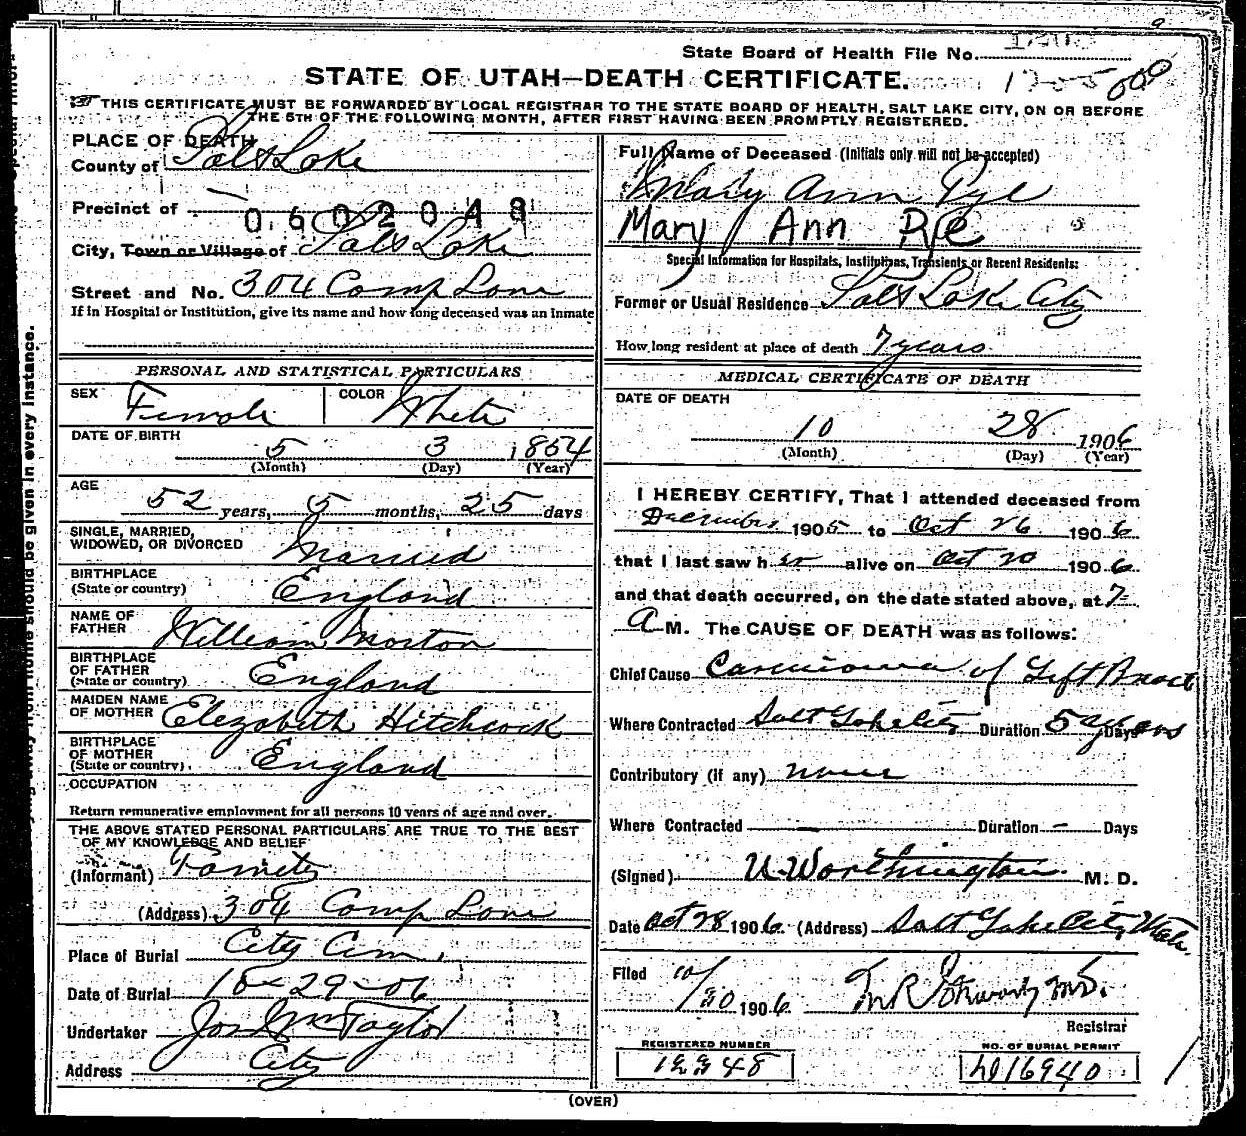 State Board of Health File No.
STATE OF UTAH—DEATH CERTIFICATE.
THIS CERTIFICATE MUST BE FORWARDED BY LOCAL REGISTRAR TO THE STATE BOARD OF HEALTH, SALT LAKE CITY, ON OR BEFORE
THE 5TH OF THE FOLLOWING MONTH, AFTER FIRST HAVING BEEN PROMPTLY REGISTERED.
PLACE OF DEATH
County of Salt Lake
Precinct of
0602048
City, Town or Village of Salt Lake
Street and No. 304 Camp Lane
If in Hospital or Institution, give its name and how long deceased was an Inmate
Full Name of Deceased (Initials only will not be accepted)
Mary Ann Pye
Mary Ann Pye
Special Information for Hospitals, Institutions, Transients or Recent Residents:
Former or Usual Residence Salt Lake City
How long resident at place of death 7 years
PERSONAL AND STATISTICAL PARTICULARS
SEX Female COLOR White
DATE OF BIRTH 5 3 1854
(Month) (Day) (Year)
AGE
52 years, 5 months, 25 days
SINGLE, MARRIED,
WIDOWED, OR DIVORCED Married
BIRTHPLACE
(State or country) England
NAME OF
FATHER William Morton
BIRTHPLACE
OF FATHER
(State or country) England
MAIDEN NAME
OF MOTHER Elezabeth Hitchcock
BIRTHPLACE
OF MOTHER
(State or country) England
OCCUPATION
Return remunerative employment for all persons 10 years of age and over.
THE ABOVE STATED PERSONAL PARTICULARS ARE TRUE TO THE BEST
OF MY KNOWLEDGE AND BELIEF
(Informant)
(Address) 304 Camp Lane
Place of Burial City Cem.
Date of Burial 10-29-06
Undertaker Jos Wm Taylor
Address City
MEDICAL CERTIFICATE OF DEATH
DATE OF DEATH
10 28 1906
(Month) (Day) (Year)
I HEREBY CERTIFY, That I attended deceased from
December 1905 to Oct 26 1906
that I last saw her alive on Oct 20 1906
and that death occurred, on the date stated above, at 7
A M. The CAUSE OF DEATH was as follows:
Chief Cause Carcinoma of Left Breast
Where Contracted Salt Lake City Duration 5 years Days
Contributory (if any) none
Where Contracted — Duration — Days
(Signed) U Worthington M. D.
Date Oct 28 1906 (Address) Salt Lake City Utah.
Filed 10/30 1906 M.D.
Registrar
REGISTERED NUMBER
NO. OF BURIAL PERMIT
16940
(OVER)
should be given in every instance.